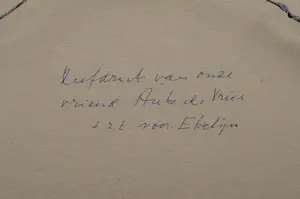 Proefdruk van onze
vriend Auke de Vries
s.r.t. voor Evelijn